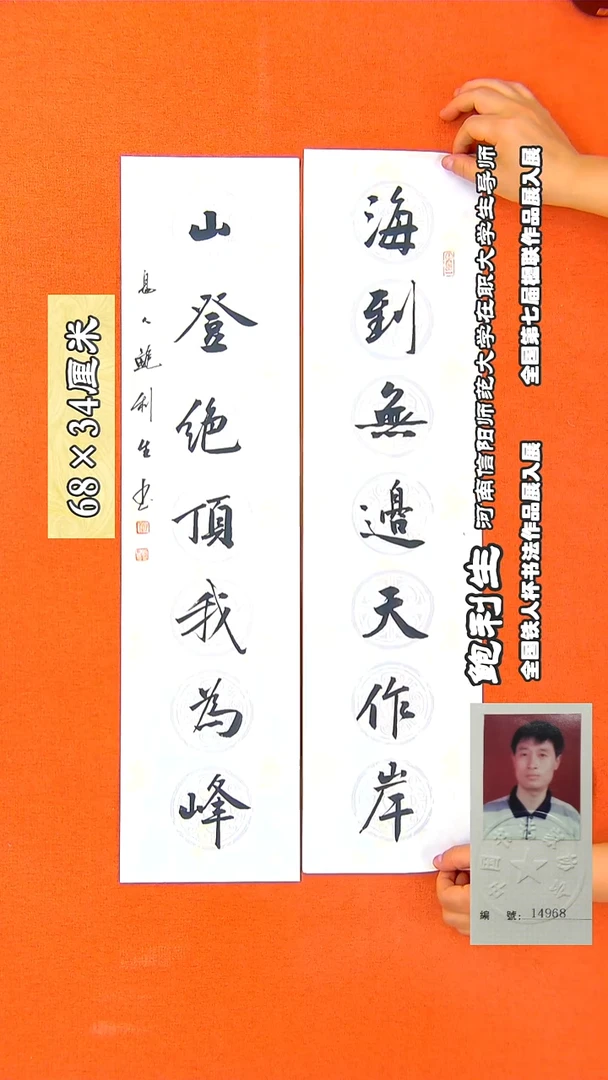 海到無邊天作岸
山登绝頂我為峰
鲍利生书
68×34厘米
鲍利生
河南信阳师范大学在职大学生导师
全国铁人杯书法作品展入展
全国第七届楹联作品展入展
編號：14968